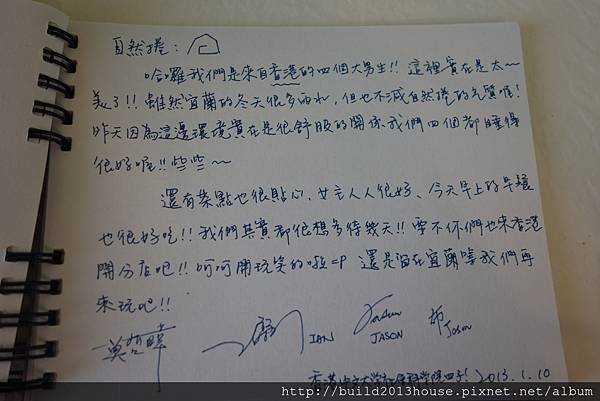 自然捲：
哈囉我們是來自香港的四個大男生!! 這裡實在是太~
美了!! 雖然宜蘭的冬天很多雨水，但也不減自然捲的氣質喔!
昨天因為這邊環境實在是很舒服的關係我們四個都睡得
很好喔!! 些些~
還有茶點也很貼心、女主人人很好、今天早上的早餐
也很好吃!! 我們其實都很想多待幾天!! 要不你們也來香港
開分店吧!! 呵呵開玩笑的啦=P 還是留在宜蘭等我們再
來玩吧!!
IAN JASON Jason
香港中文大學 學院四子! 2013.1.10
http://build2013house.pixnet.net/album